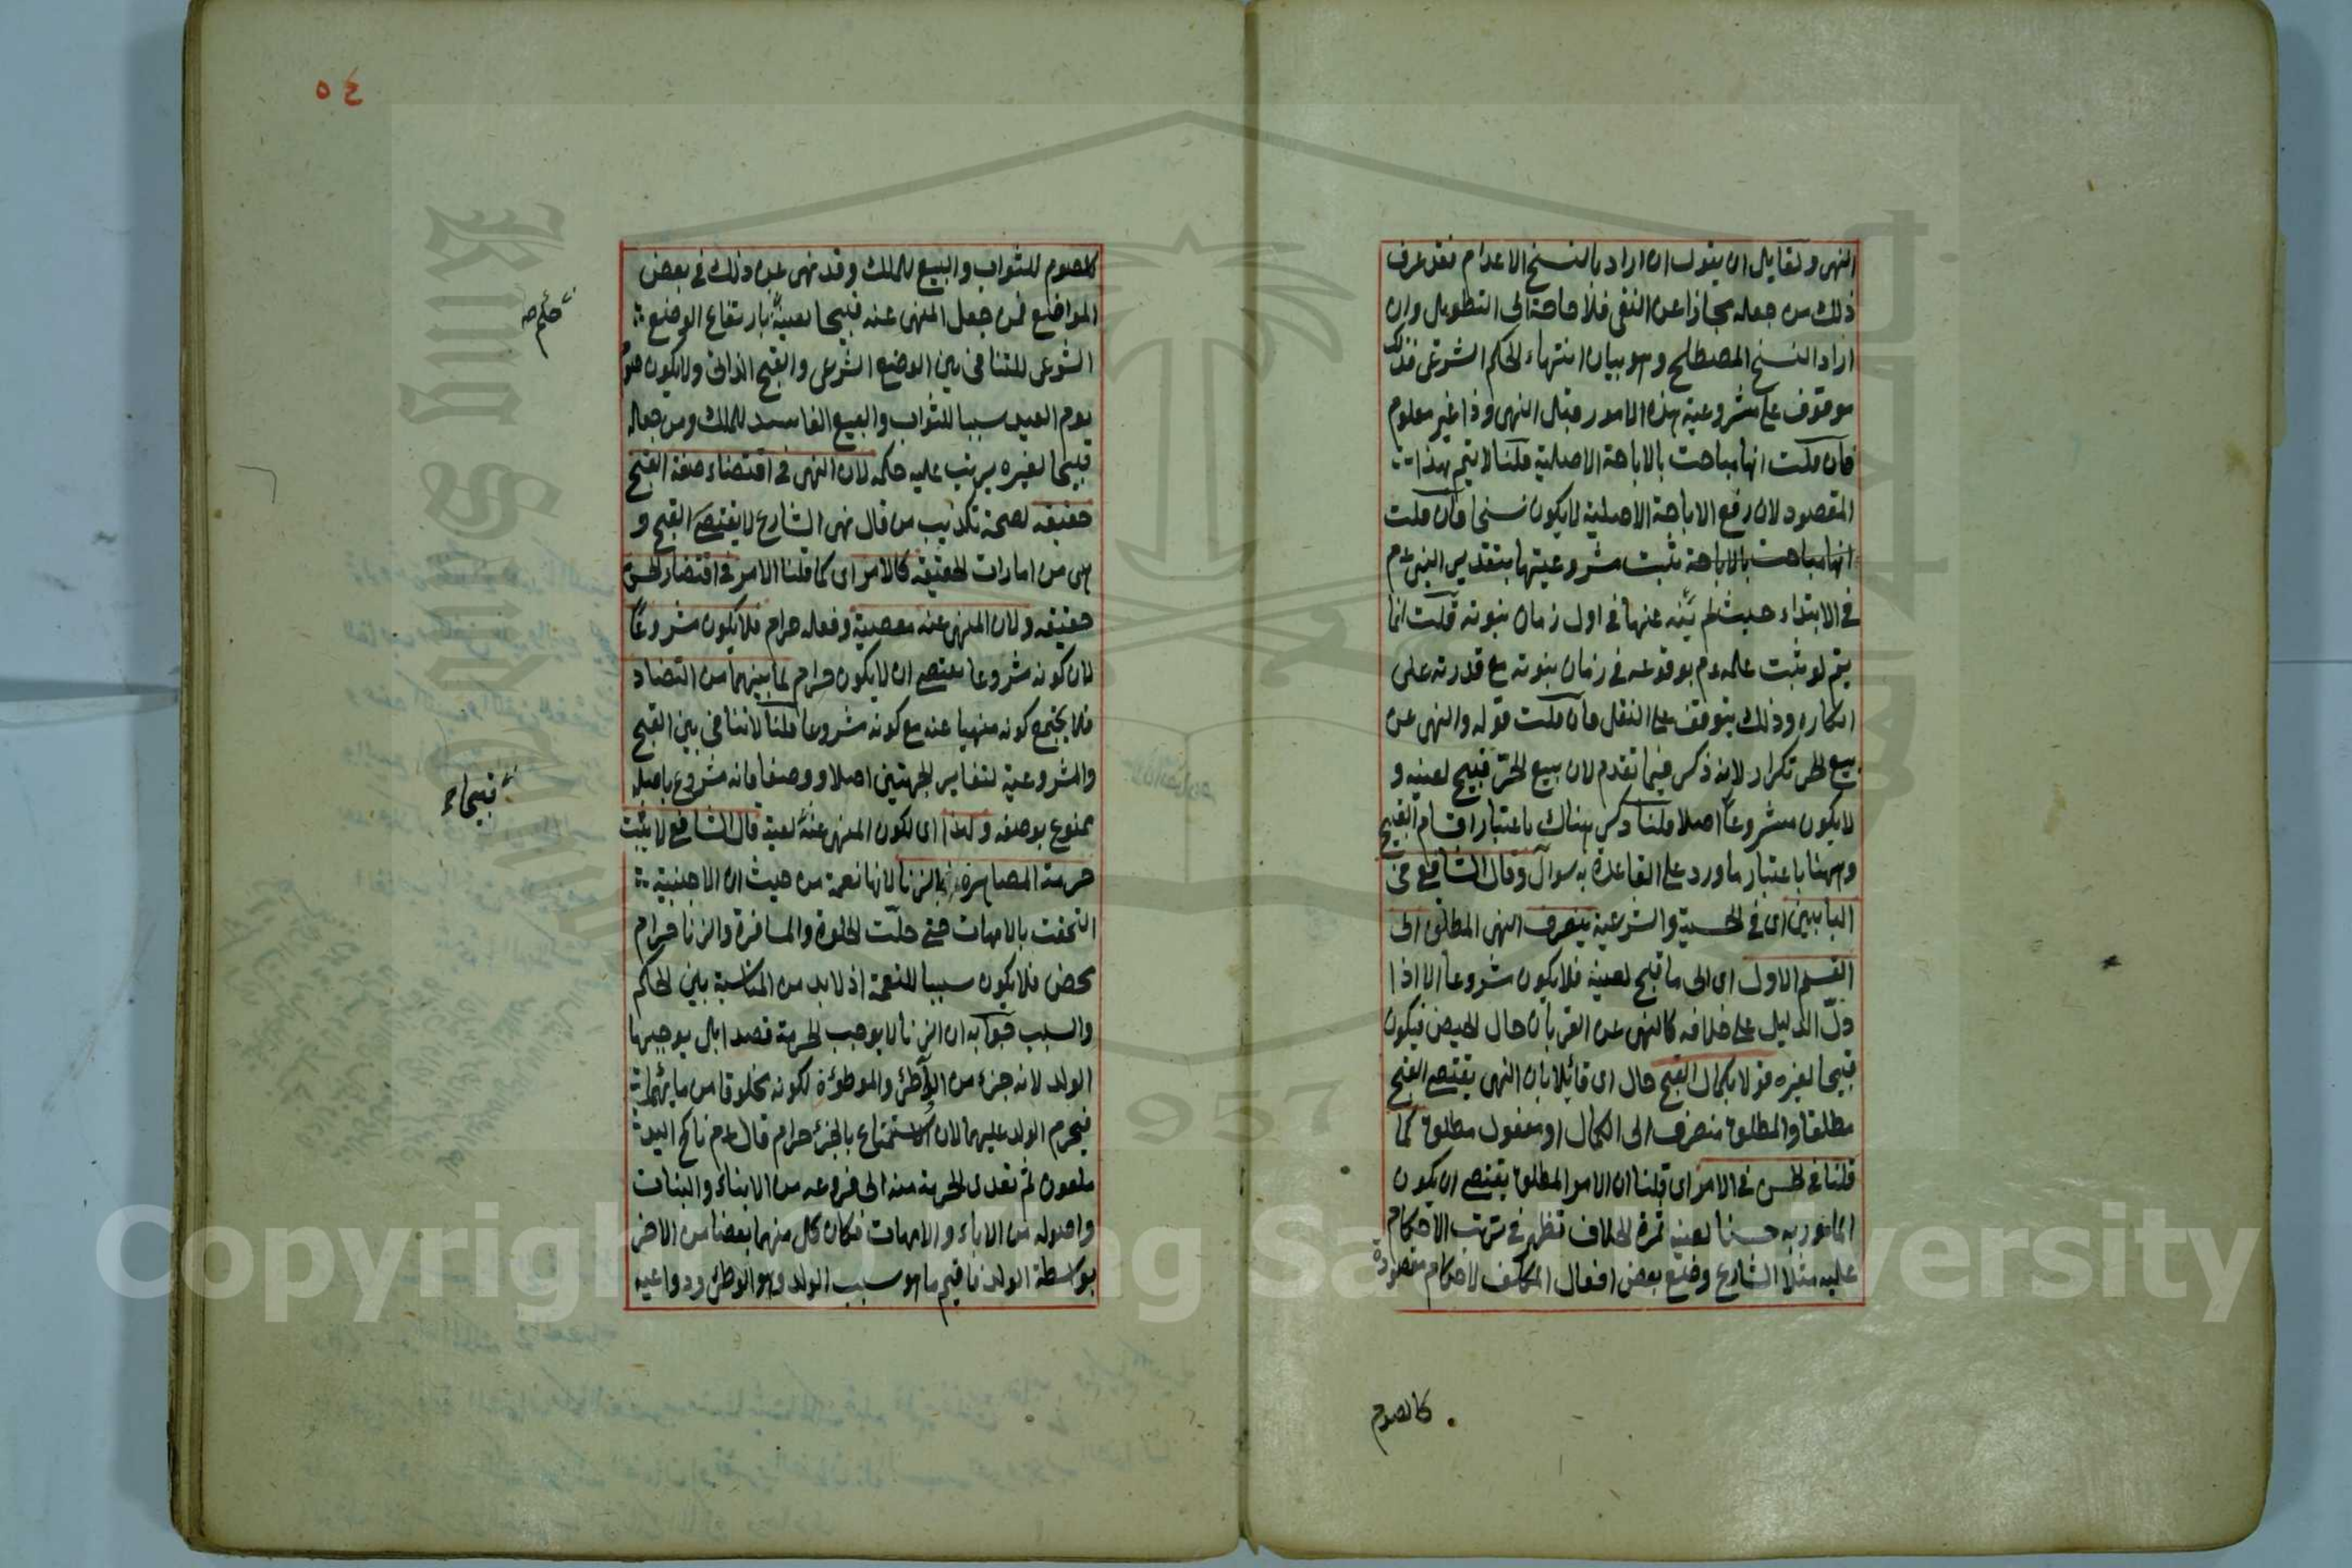 النهى ولقايل ان يقول ان اراد بالنسخ الاعدام فقد عرف
ذلك من جعله مجازا عن النفى فلا حاجة الى التطويل وان
اراد النسخ المصطلح وهو بيان انتهاء الحكم الشرعى فذلك
موقوف على مشروعية هذه الامور قبل النهى وذا غير معلوم
فان قلت انها مباحت بالاباحة الاصلية قلنا لا يتم بهذا
المقصود لان رفع الاباحة الاصلية لا يكون نسخا فان قلت
انها مباحت بالاباحة ثبت مشروعيتها بتقدير النبى عم
فى الابتداء حيث لم ينه عنها فى اول زمان نبوته قلت انما
يتم لو ثبت علمه عم بوقوعه فى زمان نبوته مع قدرته على
انكاره وذلك يتوقف على النقل فان قلت قوله والنهى عن
بيع الحر تكرار لانه ذكر فيما تقدم لان بيع الحر قبيح لعينه و
لا يكون مشروعا اصلا قلنا ذكر هناك باعتبار اقسام القبيح
وههنا باعتبار ما ورد على القاعدة به سوال وقال الشافعى فى
البابين اى فى الحسية والشرعية ينصرف النهى المطلق الى
القسم الاول اى الى ما قبح لعينه فلا يكون مشروعا الا اذا
دل الدليل على خلافه كالنهى عن القربان حال الحيض فيكون
قبيحا لغيره قولا بكمال القبح حال اى قائلا بان النهى يقتضى القبح
مطلقا والمطلق منصرف الى الكمال او مفعول مطلق كما
قلنا فى الحسن فى الامر اى قلنا ان الامر المطلق يقتضى ان يكون
المامور به حسنا لعينه ثمرة الخلاف تظهر فى ترتب الاحكام
عليه مثلا الشارع وضع بعض افعال المكلف لاحكام مقصودة
كالصوم
٥٤
كالصوم للثواب والبيع للملك وقد نهى عن ذلك فى بعض
المواضع فمن جعل المنهى عنه قبيحا لعينه بارتفاع الوضع
الشرعى للتنافى بين الوضع الشرعى والقبح الذاتى ولا يكون صوم
يوم العيد سببا للثواب والبيع الفاسد للملك ومن جعله
قبيحا لغيره يرتب عليه حكمه لان النهى فى اقتضاء صفة القبح
حقيقه لصحة تكذيب من قال نهى الشارع لا يقتضى القبح و
هى من امارات الحقيقه كالامر اى كما قلنا الامر فى اقتضاء الحسن
حقيقه ولان المنهى عنه معصية وفعله حرام فلا يكون مشروعا
لان كونه مشروعا يقتضى ان لا يكون حرام لما بينهما من التضاد
فلا يجتمع كونه منهيا عنه مع كونه مشروعا قلنا لا تنافى بين القبح
والمشروعية لتغاير الجهتين اصلا ووصفا فانه مشروع باصله
ممنوع بوصفه ولهذا اى لكون المنهى عنه لعينه قال الشافعى لا يثبت
حرمة المصاهرة بالزنا لانها نعمة من حيث ان الاجنبية
التحقت بالامهات حتى حلت الخلوة والمسافرة والزنا حرام
محض فلا يكون سببا للنعمة اذ لا بد من المناسبة بين الحكم
والسبب جوابه ان الزنا لا يوجب الحرمة قصدا بل يوجبها
الولد لانه جزء من الواطئ والموطؤة لكونه مخلوقا من مائهما
فيحرم الولد عليهما لان الاستمتاع بالجزء حرام قال عم ناكح اليد
ملعون ثم تعدى الحرمة منه الى فروعه من الابناء والبنات
واصوله من الاباء والامهات فكان كل منهما بعضا من الاخر
بواسطة الولد فاقيم ما هو سبب الولد وهو الوطئ ودواعيه
قبيحاء
Copyright © King Saud University
King Saud University
1957